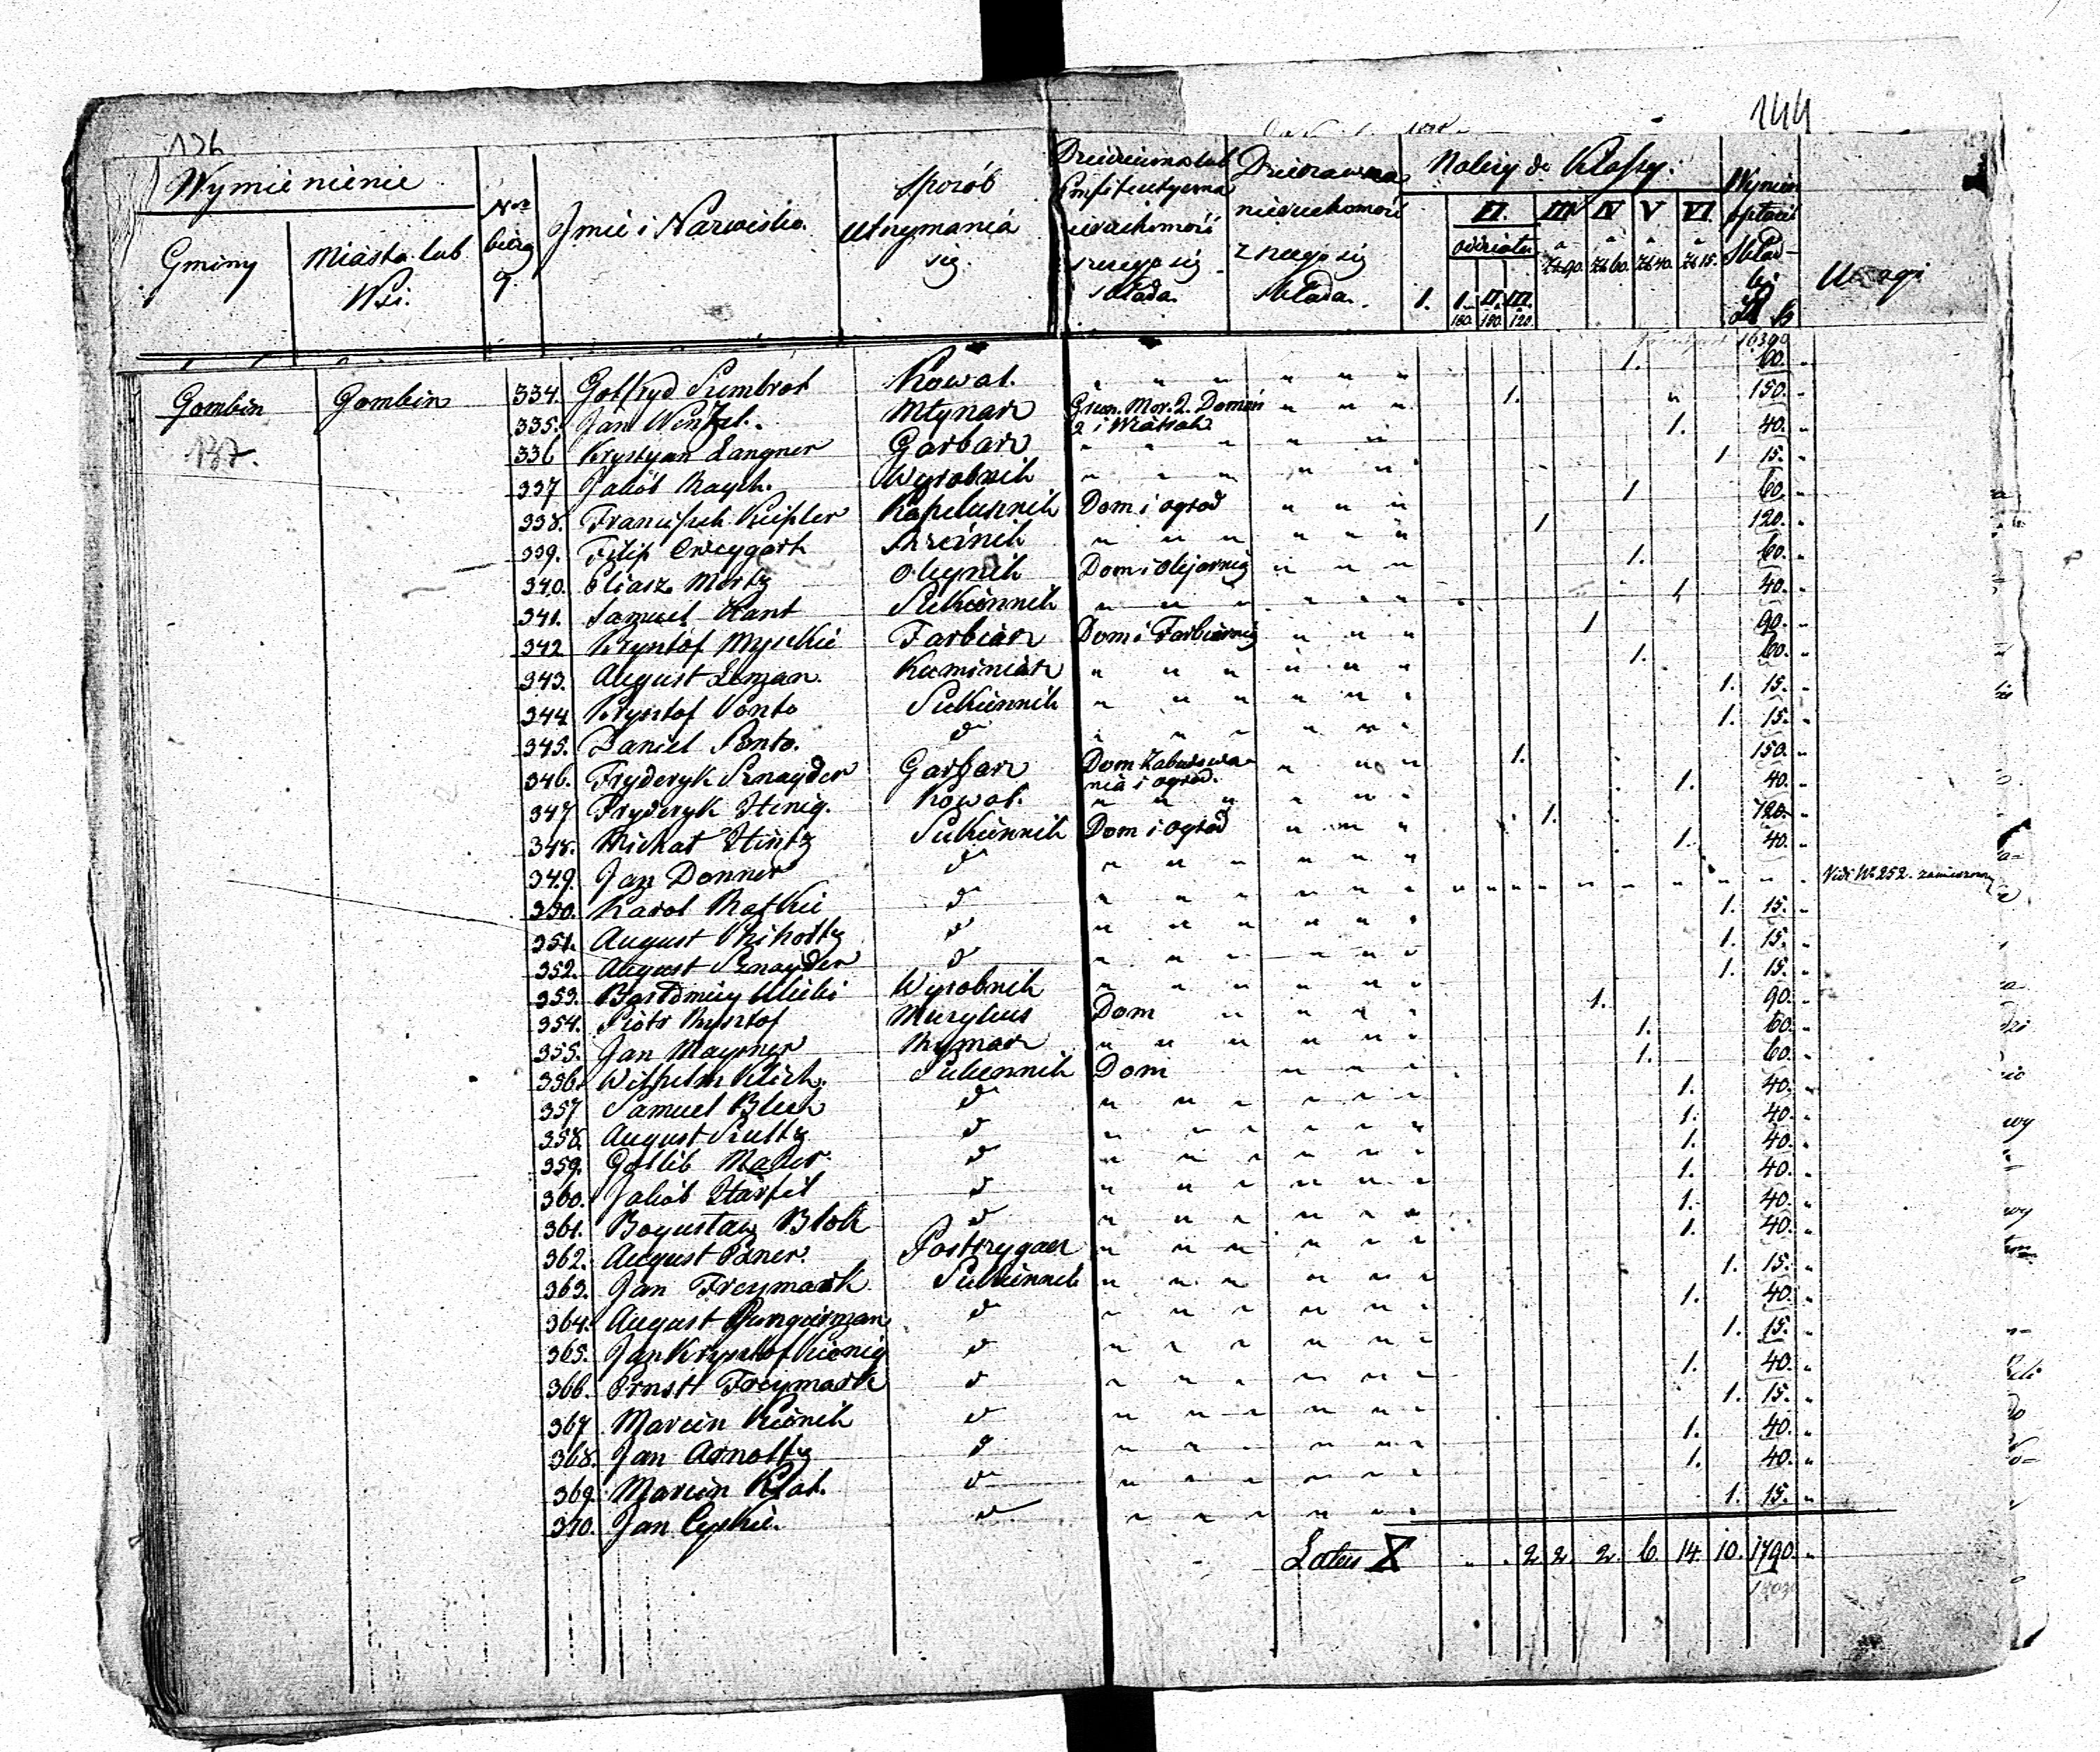 136
144
Wymienienie
Gminy
Miasta lub
Wsi.
Nro
bieżą
Imie i Nazwisko.
Sposób
utrzymania
się.
Dziedziczna lub
Emfiteutyczna
nieruchomość
z czego się
składa.
Dzierżawna
nieruchomość
z czego się
składa.
Należy do Klassy:
I. II. III IV V VI
oddziału
I. II. III.
180. 150. 120
a Zł 90. a Zł 60. a Zł 40. a Zł 15.
Uwagi
Gombin Gombin
137.
334. Gotfryd Kowal. " " " " " " 1. 60. "
335. Jan Wentzel. Młynarz Grun. Mor. 2. Domów 2 i Wiatrak " " " 1. " 150. "
336 Krystyan Langner Garbarz " " " " " 1. 40. "
337 Jakób Raych. Wyrobnik " " " " " 1 15. "
338. Franciszek Kapelusznik Dom i ogrod " " " 1 60. "
339. Filip " " " " " " 1 120. "
340. Eliasz Mortz Oleynik Dom i Olejarnia " " " 1. 60. "
341. Samuel Kant Sukiennik " " " " " " 1 40. "
342 Krysztof Farbiarz Dom i Farbiarnia " " " 1 90. "
343. August Kominiarz " " " " " " 1. 60. "
344. Krysztof Ponto Sukiennik " " " " " " 1. 15. "
345. Daniel Ponto. d " " " " " " 1. 15. "
346. Fryderyk Sznayder Garbarz Dom Zabudowania i ogrod. " " " 1. 150. "
347 Fryderyk Henig. Kowal. " " " " " " 1. 40. "
348. Michał Hintz Sukiennik Dom i ogrod " " " 1. 120. "
349. Jan Donner d " " " " " " 1. 40. "
350. Karol Ratkie d " " " " " " " " " " " " " " " Vide No 252.
351. August d " " " " " " 1. 15. "
352. August Sznayder d " " " " " " 1. 15. "
353. Wyrobnik " " " " " " 1. 15. "
354. Piotr Krysztof Murykus Dom " " " " 1. 90. "
355. Jan Mayzner Rymarz " " " " " " 1. 60. "
356. Wilhelm Klich. Sukiennik Dom " " " 1. 60. "
357 Samuel Blech d " " " " " " 1. 40. "
358. August Szultz d " " " " " " 1. 40. "
359. Gotlib d " " " " " " 1. 40. "
360. Jakób d " " " " " " 1. 40. "
361. Bogusław Blok d " " " " " " 1. 40. "
362. August Postrzygacz " " " " " " 1. 40. "
363. Jan Freymark Sukiennik " " " " " " 1. 15. "
364. August d " " " " " " 1. 40. "
365. Jan Krysztof Kionig d " " " " " " 1. 15. "
366. Ernst Freymark d " " " " " " 1. 40. "
367 Marcin Kionik d " " " " " " 1. 15. "
368. Jan Arnoltz d " " " " " " 1. 40. "
369. Marcin Klat. d " " " " " " 1. 40. "
370. Jan d " " " " " " 1. 15. "
Latus X " . 2 2. 2. 6. 14. 10. 1790. "